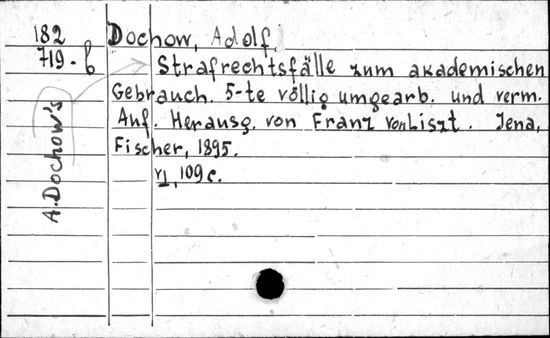 182
719-b
Dochow, Adolf.
A. Dochow's
Strafrechtsfälle zum akademischen
Gebrauch. 5-te völlig umgearb. und verm.
Auf. Herausg. von Franz von Liszt. Jena,
Fischer, 1895.
VI, 109 c.